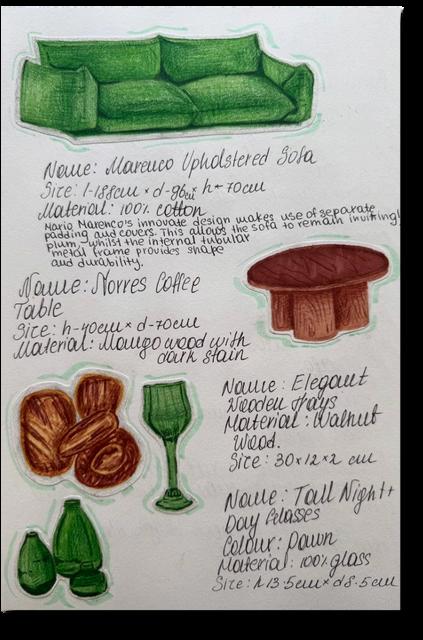 Name: Marenco Upholstered Sofa
Size: l-188cm × d-96cm × h-70cm
Material: 100% cotton
Mario Marenco's innovate design makes use of separate
padding and covers. This allows the sofa to remain invitingly
plum, whilst the internal tubular
metal frame provides shape
and durability.
Name: Norres Coffee
Table
Size: h-40cm × d-70cm
Material: Mango wood with
dark stain
Name: Elegant
Wooden trays
Material: Walnut
Wood.
Size: 30×12×2 cm
Name: Tall Night+
Day Glasses
Colour: Dawn
Material: 100% glass
Size: h13.5cm × d8.5cm